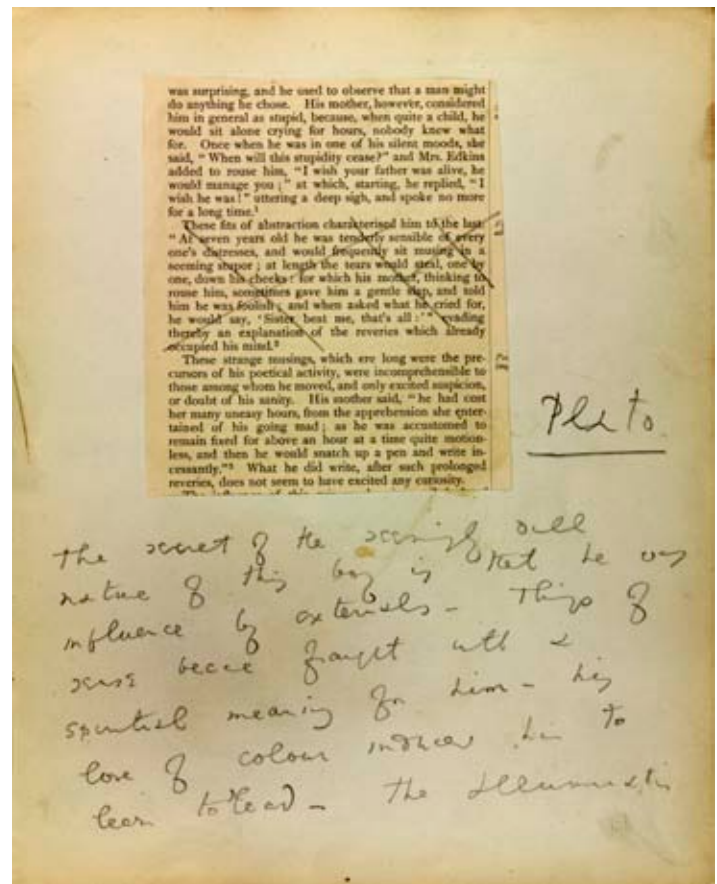 was surprising, and he used to observe that a man might
do anything he chose. His mother, however, considered
him in general as stupid, because, when quite a child, he
would sit alone crying for hours, nobody knew what
for. Once when he was in one of his silent moods, she
said, “ When will this stupidity cease?” and Mrs. Edkins
added to rouse him, “I wish your father was alive, he
would manage you ;” at which, starting, he replied, “ I
wish he was! ” uttering a deep sigh, and spoke no more
for a long time.¹
These fits of abstraction characterised him to the last.
“ At seven years old he was tenderly sensible of every
one's distresses, and would frequently sit musing in a
seeming stupor ; at length the tears would steal, one by
one, down his cheeks : for which his mother, thinking to
rouse him, sometimes gave him a gentle slap, and told
him he was foolish ; and when asked what he cried for,
he would say, ‘Sister beat me, that's all :’ ” evading
thereby an explanation of the reveries which already
occupied his mind.²
These strange musings, which ere long were the pre-
cursors of his poetical activity, were incomprehensible to
those among whom he moved, and only excited suspicion,
or doubt of his sanity. His mother said, “ he had cost
her many uneasy hours, from the apprehension she enter-
tained of his going mad ; as he was accustomed to
remain fixed for above an hour at a time quite motion-
less, and then he would snatch up a pen and write in-
cessantly.”³ What he did write, after such prolonged
reveries, does not seem to have excited any curiosity.
Plato
The secret of the seemingly dull
nature of this boy is that he was
influence by externals – Things of
sense became fraught with a
spiritual meaning for him – his
love of colour induces him to
learn to read – The